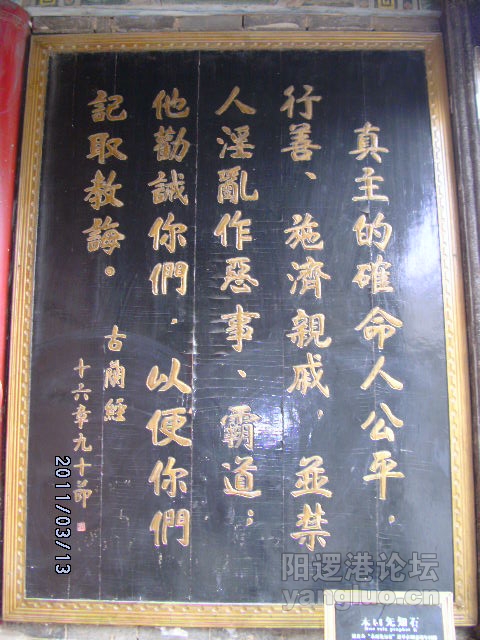 真主的確命人公平．
行善、施濟親戚．並禁
人淫亂作惡事、霸道；
他勸誡你們．以便你們
記取教誨。
古蘭經
十六章九十節
2011/03/13
阳逻港论坛
yangluo.cn